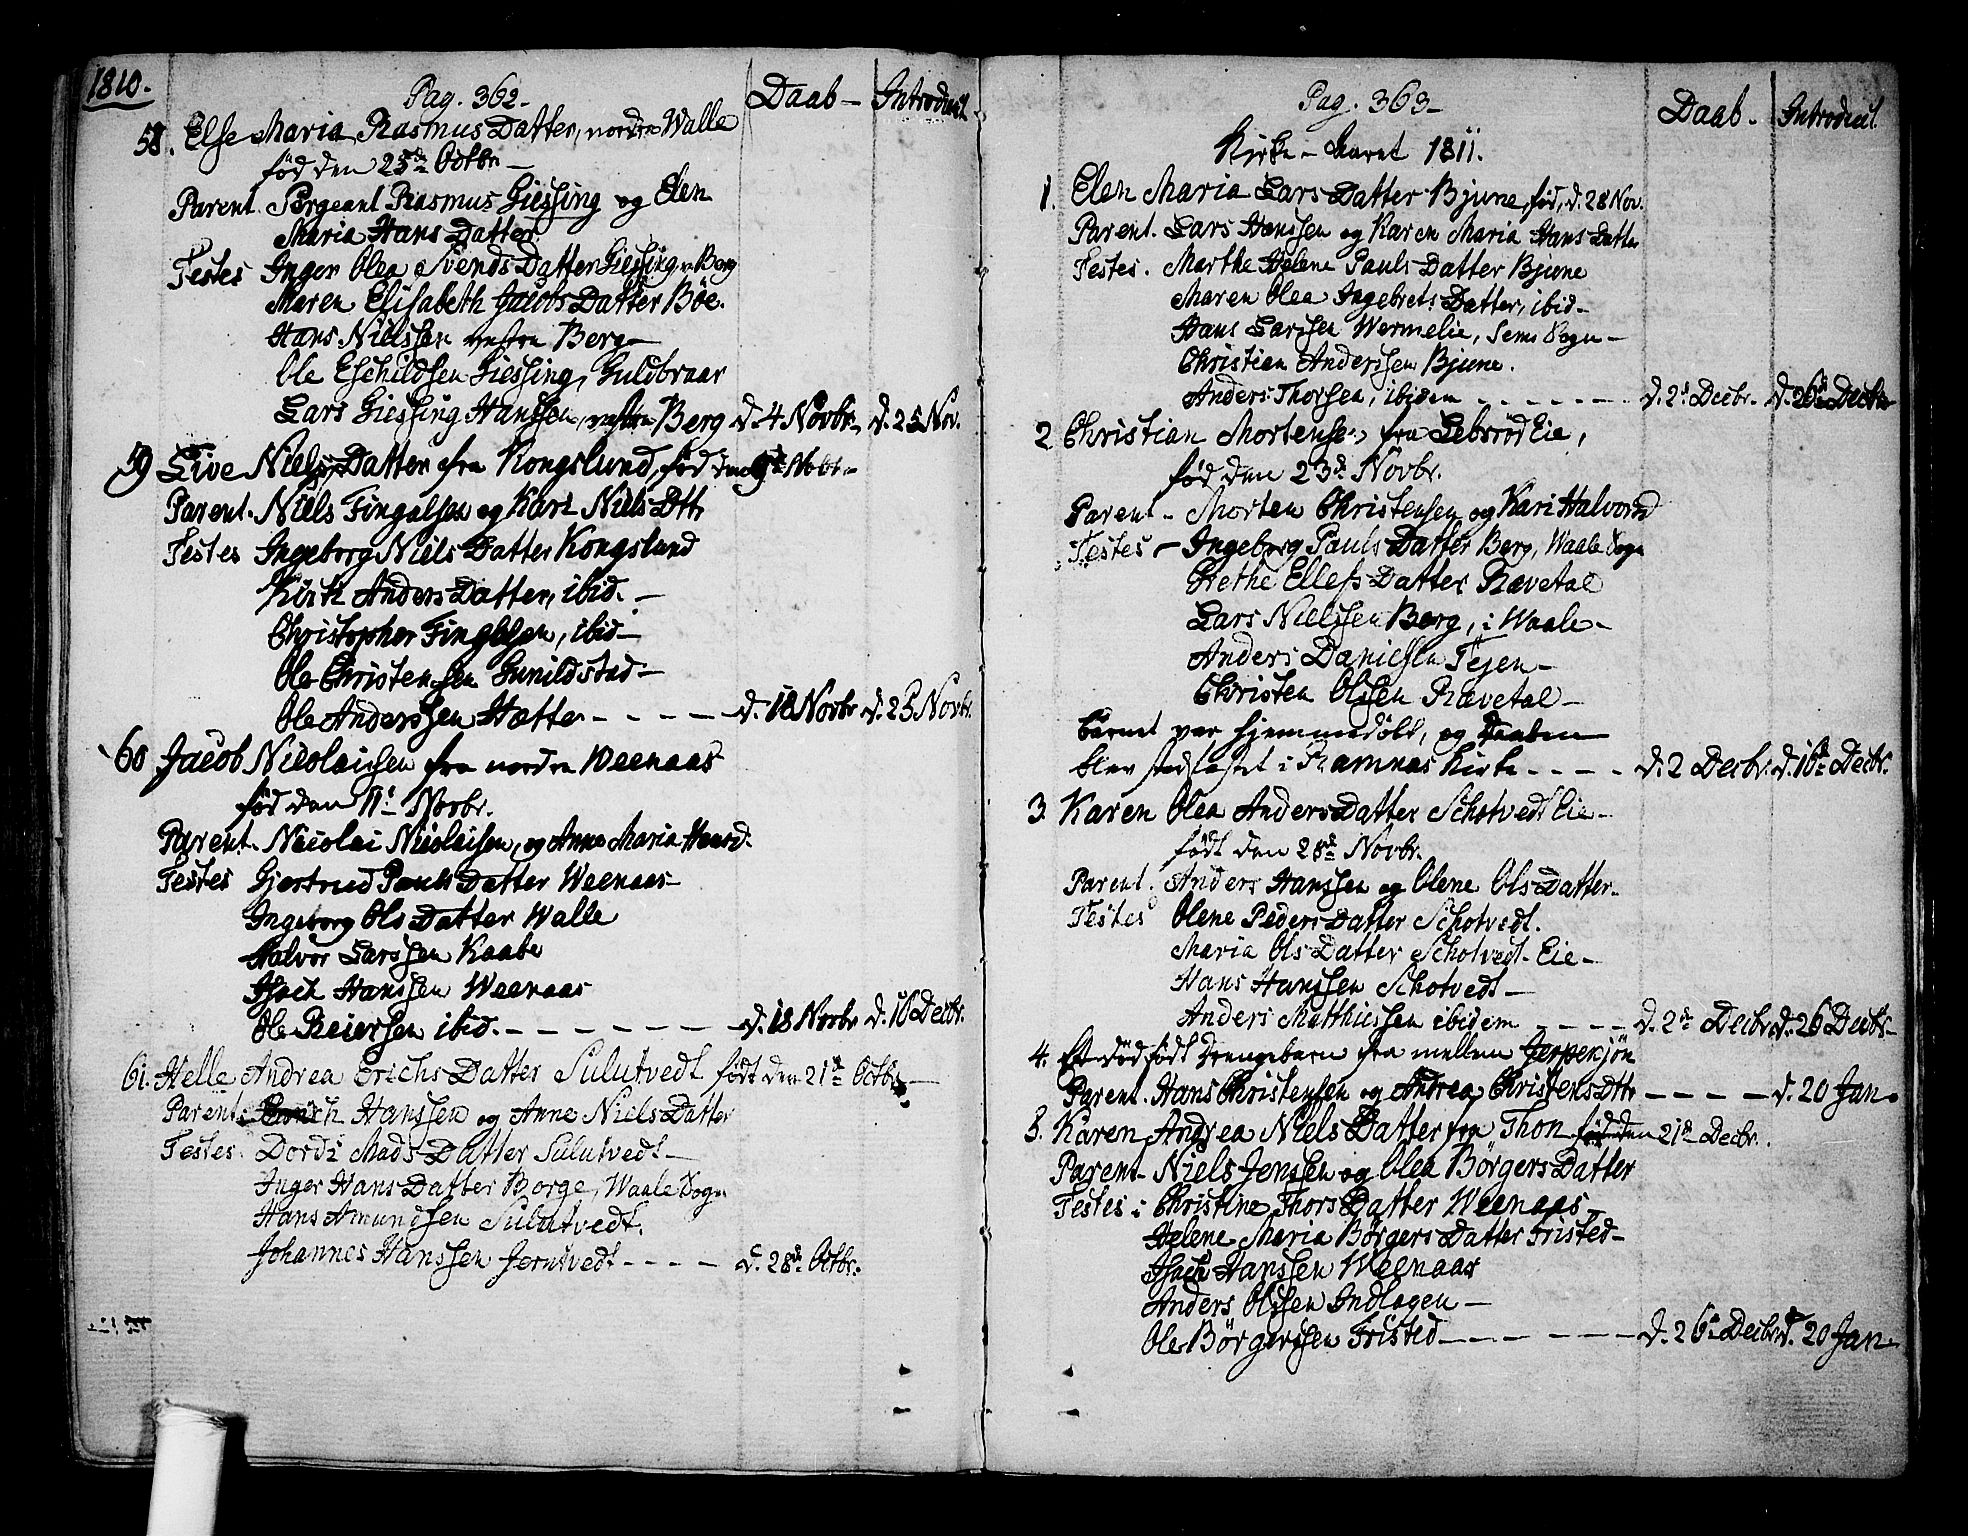 1810.
Pag. 362. Daab - Introduct.
58. Else Maria Rasmus Datter, nordre Walle
fød den 25de Octbr. -
Parent. Sergeant Rasmus Giessing og Elen
Maria Hans Datter
Testes Inger Olea Svends Datter Giessing v. Berg
Maren Elisabeth Jacobs Datter Böe.
Hans Nielssen vestre Berg -
Ole Eschildsen Giessing, Guldbraar
Lars Giessing Hanssen, vestre Berg d. 4 Novbr. d. 25 Nov.
59 Live Niels Datter fra Kongslund, fød den 9de Nobr. -
Parent. Niels Fingalsen og Kari Niels Dtr
Testes Ingeborg Niels Datter Kongslund
Kirti Anders Datter, ibid. -
Christopher Finglesen, ibid -
Ole Christensen Gunildstad -
Ole Anderssen Hætte - - - - - d. 18 Novbr d. 25 Novbr.
60 Jacob Nicolaissen fra nordre Weenaas
fød den 11te Novbr.
Parent. Nicolai Nicolaisen, og Anne Maria Hansd.
Testes Gjertrud Pauls Datter Weenaas -
Ingeborg Ols Datter Walle
Halvor Larssen Kaabe
Isach Hanssen Weenaas
Ole Reierssen ibid. - - - - - - d. 18 Novbr d. 16 Decbr.
61. Helle Andrea Erichs Datter Sulutvedt født den 21de Octbr. -
Parent. Erich Hanssen og Anne Niels Datter
Testes. Dordi Mads Datter Sulutvedt -
Inger Hans Datter Borge, Waale Sogn
Hans Amundsen Sulutvedt.
Johannes Hanssen Jerntvedt - - - - d. 28de Octbr.
Pag. 363 - Daab. - Introduct.
Kirke - Aaret 1811.
1. Elen Maria Lars Datter Bjune, fød, d. 28 Nov.
Parent. Lars Hanssen og Karen Maria Hans Datter
Testes. Marthe Helene Pauls Datter Bjune
Maren Olea Ingebrets Datter, ibid -
Hans Larssen Wermelie, Sems Sogn -
Christian Anderssen Bjune.
Anders Thorsen, ibidem - - - - - - d. 2de Decbr. d. 26de Decbr
2 Christian Mortensen fra Lebsrød Eie,
fød den 23de Novbr.
Parent - Morten Christensen og Kari Halvorsd
Testes - Ingeborg Pauls Datter Berg, Waale Sogn
Grethe Ellefs Datter Rævetal
Lars Nielssen Berg, i Waale -
Anders Danielsen Tejen -
Christen Olssen Rævetal -
Barnet var hjemmedøbt, og Daaben
blev stadfæstet i Ramnæs Kirke - - - - d. 2 Decbr. d. 16de Decbr.
3. Karen Olea Anders Datter Schotvedt Eie -
født den 28de Novbr.
Parent. Anders Hanssen og Olene Ols Datter.
Testes Olene Peders Datter Schotvedt.
Maria Ols Datter Schotvedt Eie -
Hans Hanssen Schotvedt -
Anders Matthiessen ibidem - - - - d. 2de Decbr d. 26 Decbr -
4. Et død født Drengebarn fra mellem Jerpenjön
Parent. Hans Christensen og Andrea Christens Dtr - - - - - d. 20 Jan.
5. Karen Andrea Niels Datter fra Thon fød den 21de Decbr.
Parent - Niels Jenssen og Olea Börgers Datter
Testes : Christine Thors Datter Weenaas -
Helene Maria Börgers Datter Fristed -
Isach Hanssen Weenaas
Anders Olssen Indlagen -
Ole Börgerssen Fristed - - - - - - d. 26de Decbr d. 20 Jan -